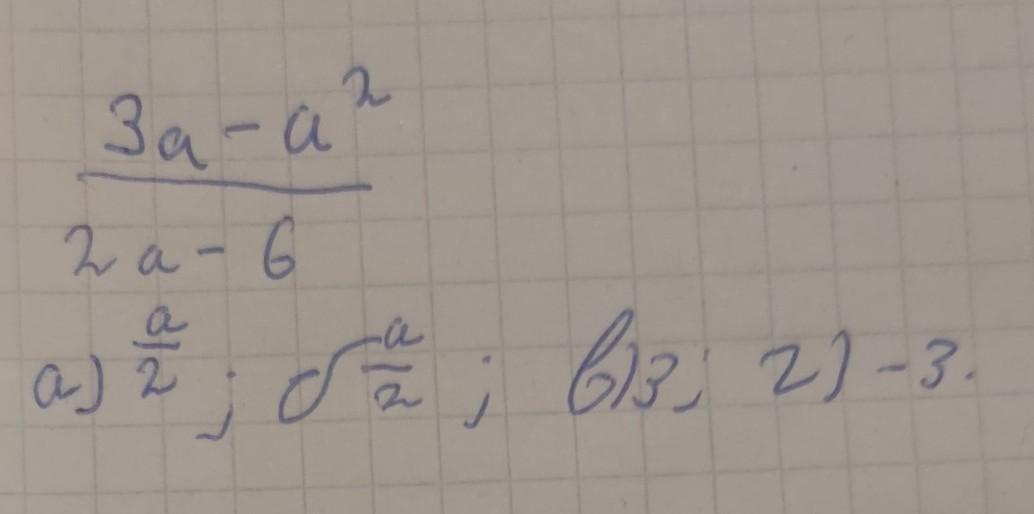 3a - a²
2a - 6
а) a/2; б) -a/2; в) 3; г) -3.